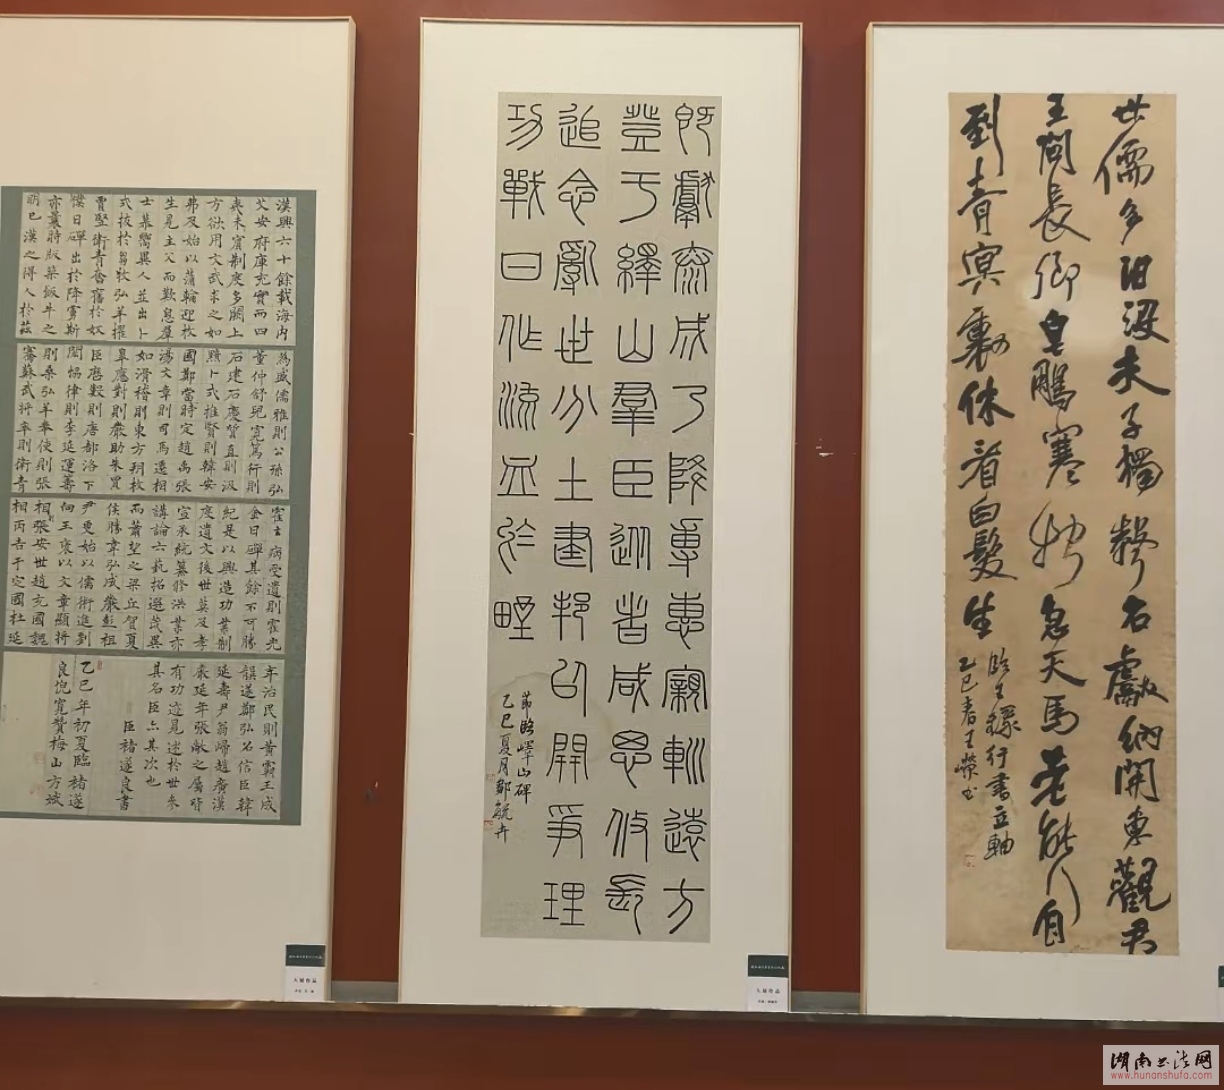 漢興六十餘載海内
艾安府庫充實而四
夷未賓制度多闕上
方欲用文武求之如
弗及始以蒲輪迎枚
生見主父而歎息羣
士慕嚮異人並出卜
式拔於芻牧弘羊擢
賈竪衛青奮於奴
僕日磾出於降虜斯
亦曩時版築飯牛之
朋已漢之得人於茲
為盛儒雅則公孫弘
董仲舒兒寬篤行則
石建石慶質直則汲
黯卜式推賢則韓安
國鄭當時定趙禹張
湯文章則司馬遷相
如滑稽則東方朔枚
皋應對則嚴助朱買
臣歷數則唐都洛下
閎協律則李延運籌
則桑弘羊奉使則張
騫蘇武將率則衛青
霍去病受遺則霍光
金日磾其餘不可勝
紀是以興造功業制
度遺文後世莫及孝
宣承統纂修洪業亦
講論六藝招選茂異
而蕭望之梁丘賀夏
侯勝韋弘成嚴彭祖
尹更始以儒術進劉
向王襃以文章顯將
相張安世趙充國魏
相丙吉于定國杜延
年治民則黃霸王成
龔遂鄭弘召信臣韓
延壽尹翁歸趙廣漢
嚴延年張敞之屬皆
有功迹見述於世參
其名臣亦其次也
臣褚遂良書
乙巳年初夏臨褚遂
良倪寬贊梅山方斌
既獻泰成乃降專惠親巡遠方
登于繹山羣臣從者咸思攸長
追念亂世分土建邦以開爭理
功戰日作流血於野
節臨嶧山碑
乙巳夏月鄭毓卉
世儒多汩沒夫子獨聲名獻納開東觀君
王問長卿皇鵰寒始急天馬老能行自
到青冥裏休看白髮生
臨王鐸行書立軸
乙巳春王
入展作品
入展作品
湖南书法网
www.hunanshufa.com